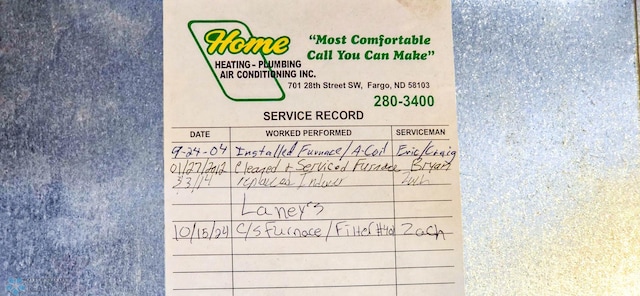 Home
HEATING - PLUMBING
AIR CONDITIONING INC.
"Most Comfortable
Call You Can Make"
701 28th Street SW, Fargo, ND 58103
280-3400
SERVICE RECORD
DATE WORKED PERFORMED SERVICEMAN
9-24-04 Installed Furnace/A-Coil Eric/Craig
01/27/2012 Cleaned + Serviced Furnace Bryan
3/3/14 replaced Inducer Zach
Laney's
10/15/24 C/S Furnace/Filter Zach